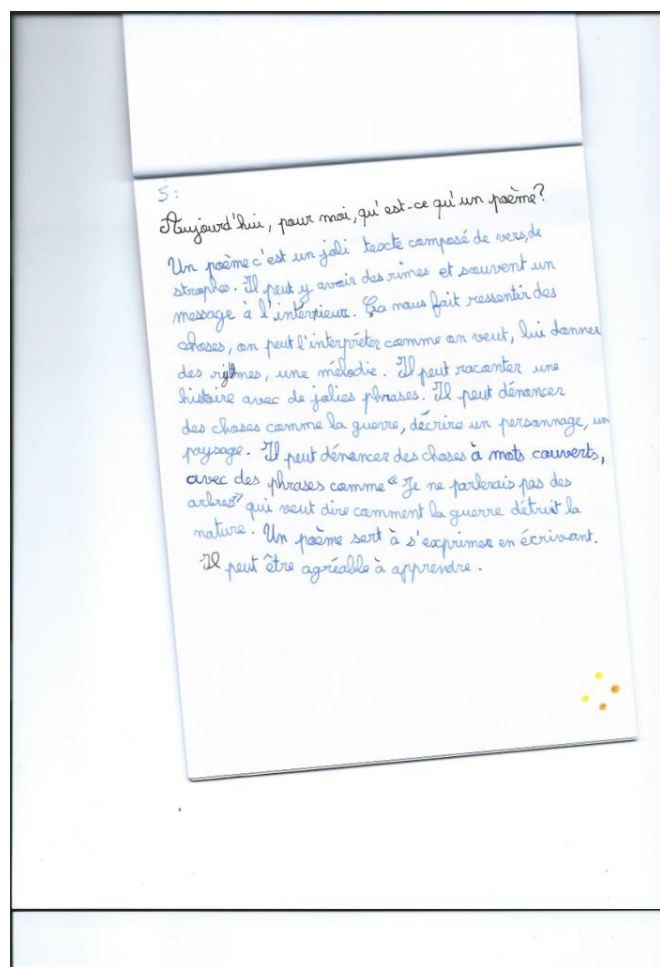 5:
Aujourd'hui, pour moi, qu'est-ce qu'un poème?
Un poème c'est un joli texcte composé de vers, de
strophe. Il peut y avoir des rimes et souvent un
message à l'intérieur. Ça nous fait ressentir des
choses, on peut l'interpréter comme on veut, lui donner
des rytmes, une mélodie. Il peut raconter une
histoire avec de jolies phrases. Il peut dénoncer
des choses comme la guerre, décrire un personnage, un
paysage. Il peut dénoncer des choses à mots couverts,
avec des phrases comme "Je ne parlerais pas des
arbres" qui veut dire comment la guerre détruit la
nature. Un poème sert à s'exprimer en écrivant.
Il peut être agréable à apprendre.